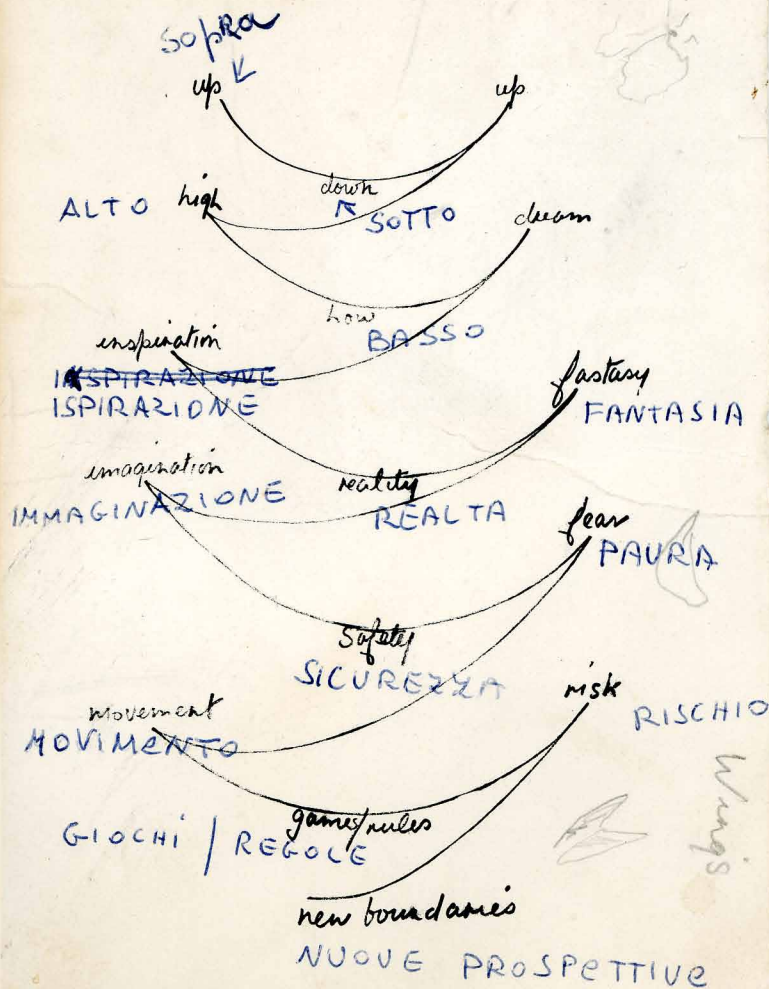 sopRa
up up
down
ALTO high
SOTTO
dream
Low
BASSO
inspiration
INSPIRAZIONE
ISPIRAZIONE
fastasy
FANTASIA
imagination
IMMAGINAZIONE
reality
REALTA
fear
PAURA
Safety
SICUREZZA
risk
RISCHIO
movement
MOVIMENTO
game/rules
GIOCHI / REGOLE
Wings
new boundaries
NUOVE PROSPETTIVE